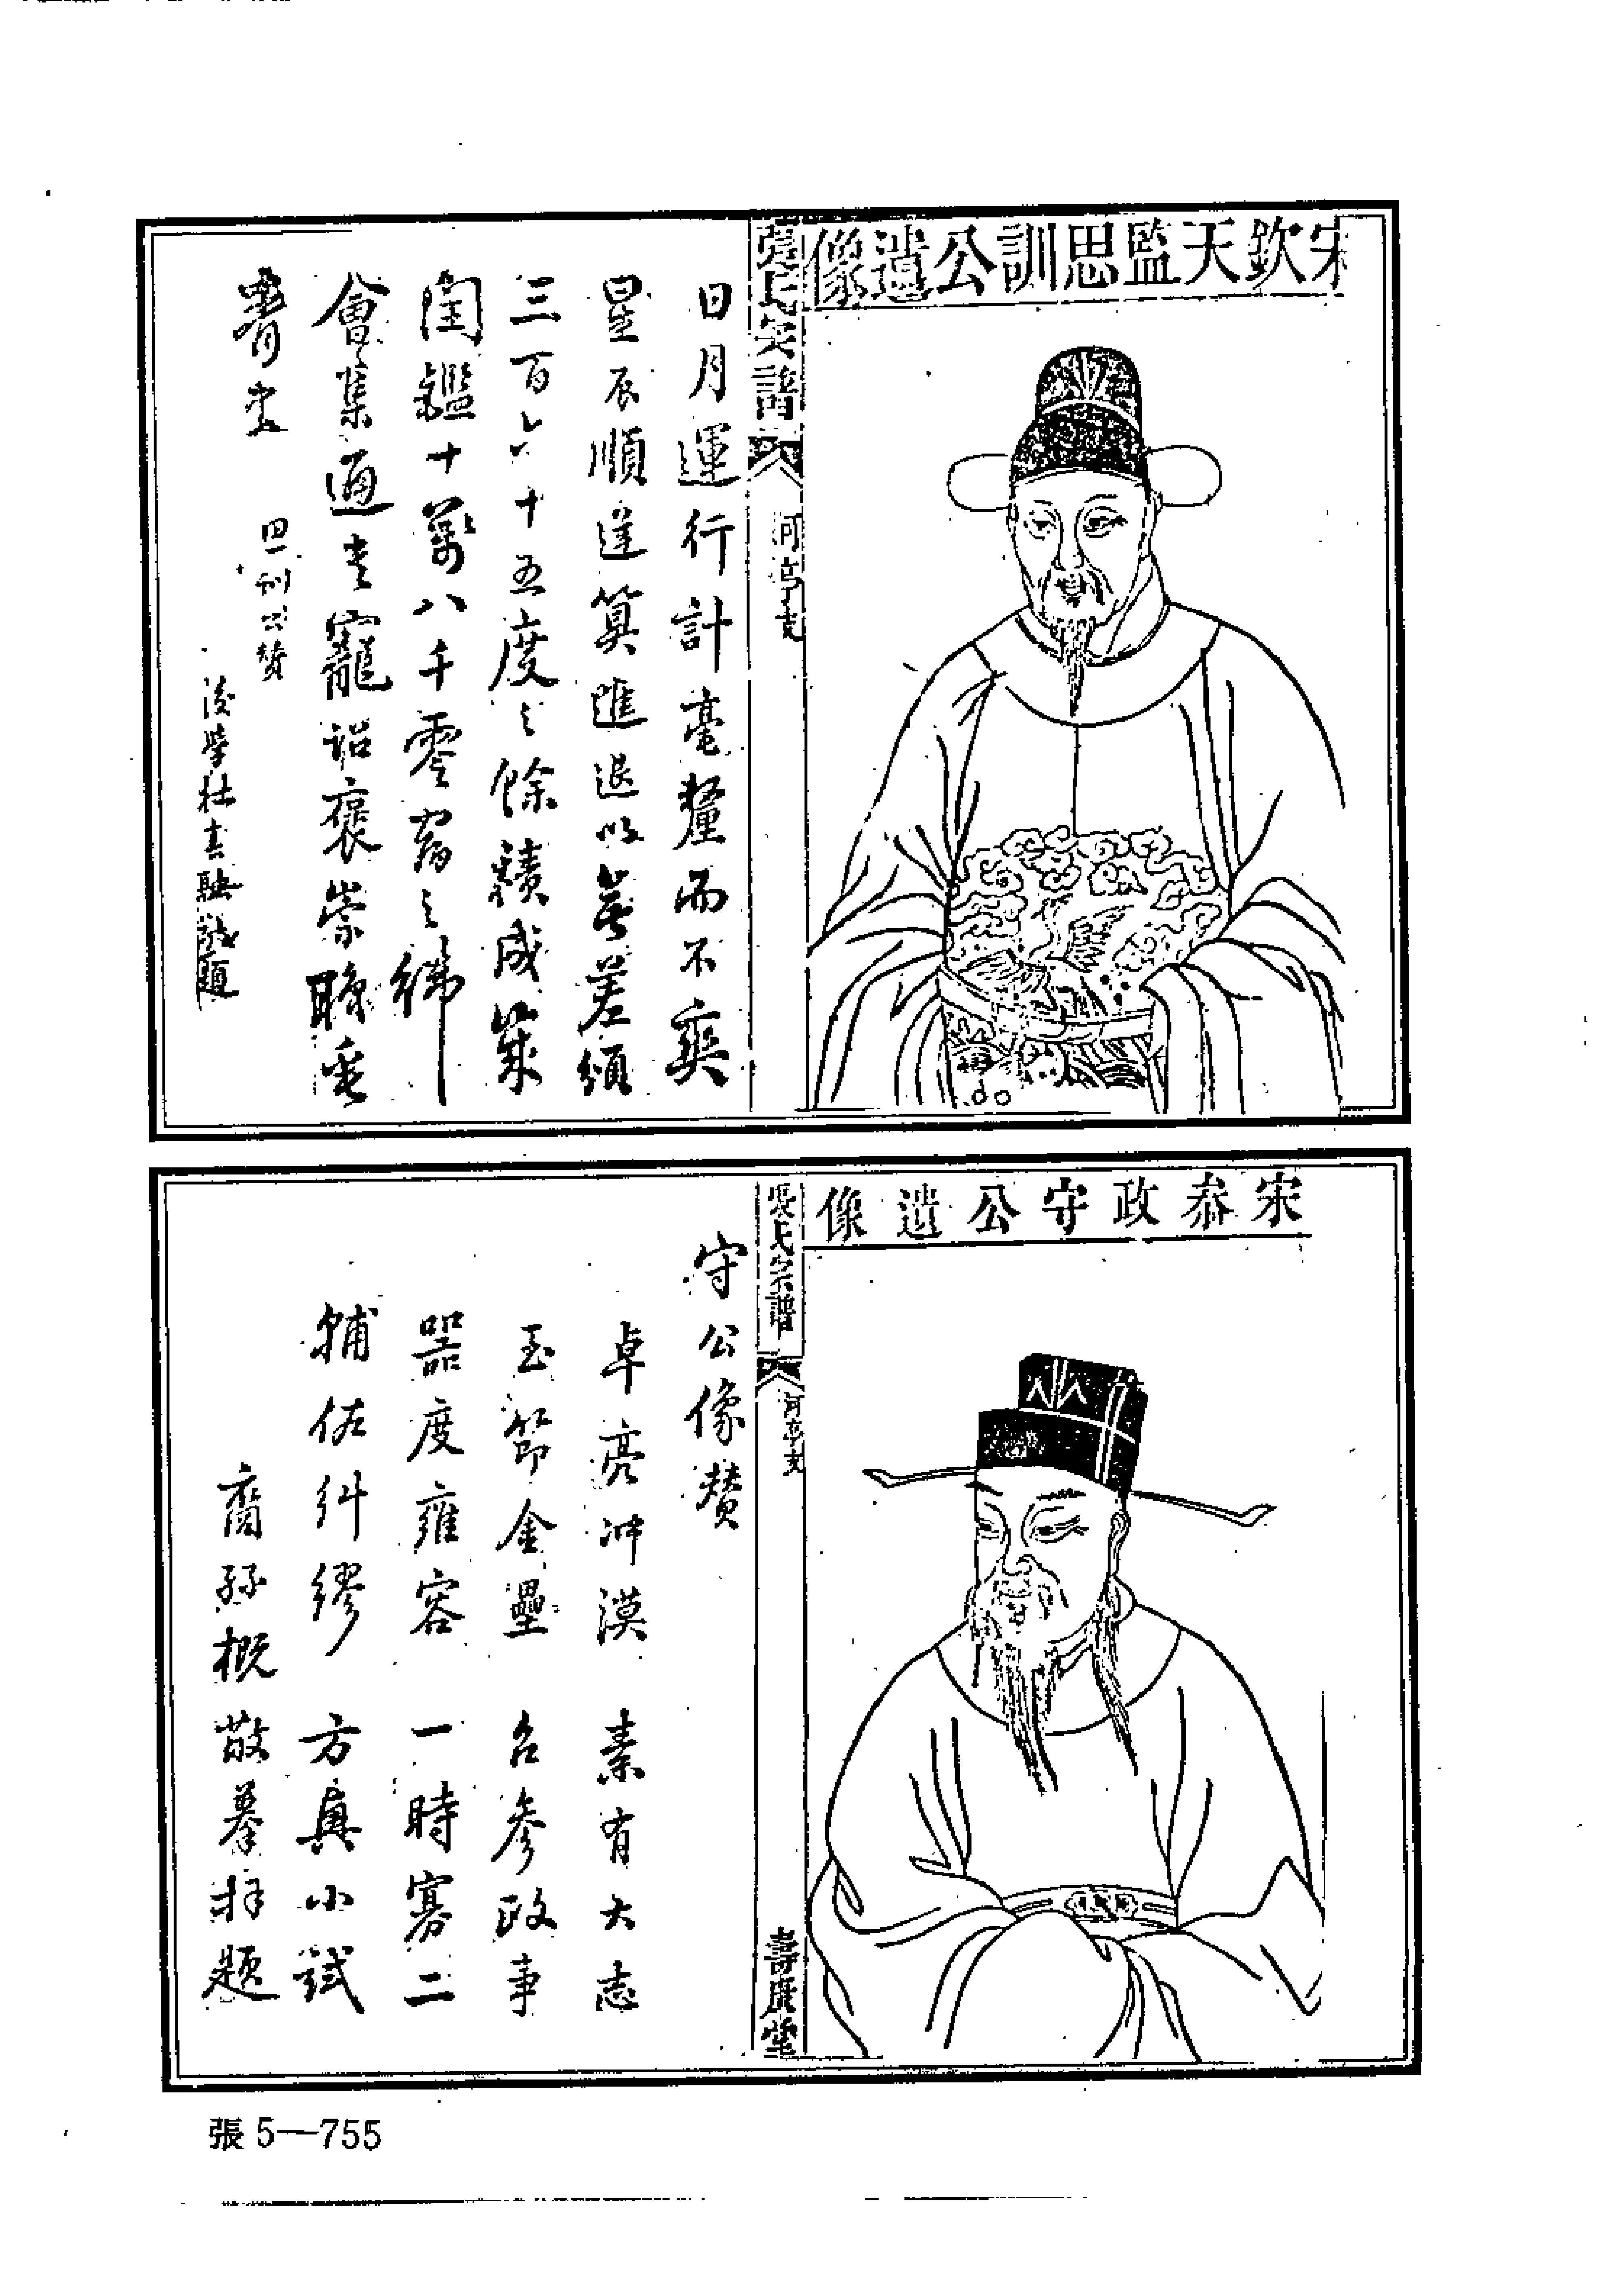 宋欽天監思訓公遺像
張氏宗譜
河亭支
日月運行計毫釐而不爽
星辰順逆算進退以無差頒
三百六十五度之餘積成策
閏鑑十萬八千零
會集通 寵詔褒崇
思訓公贊
後學杜 題
宋叅政守公遺像
張氏宗譜
河亭支
壽康堂
守公像贊
卓亮冲漠 素有大志
玉節金壘 名參政事
器度雍容 一時寡二
輔佐糾繆 方真小試
裔孫概敬摹拜題
張5—755